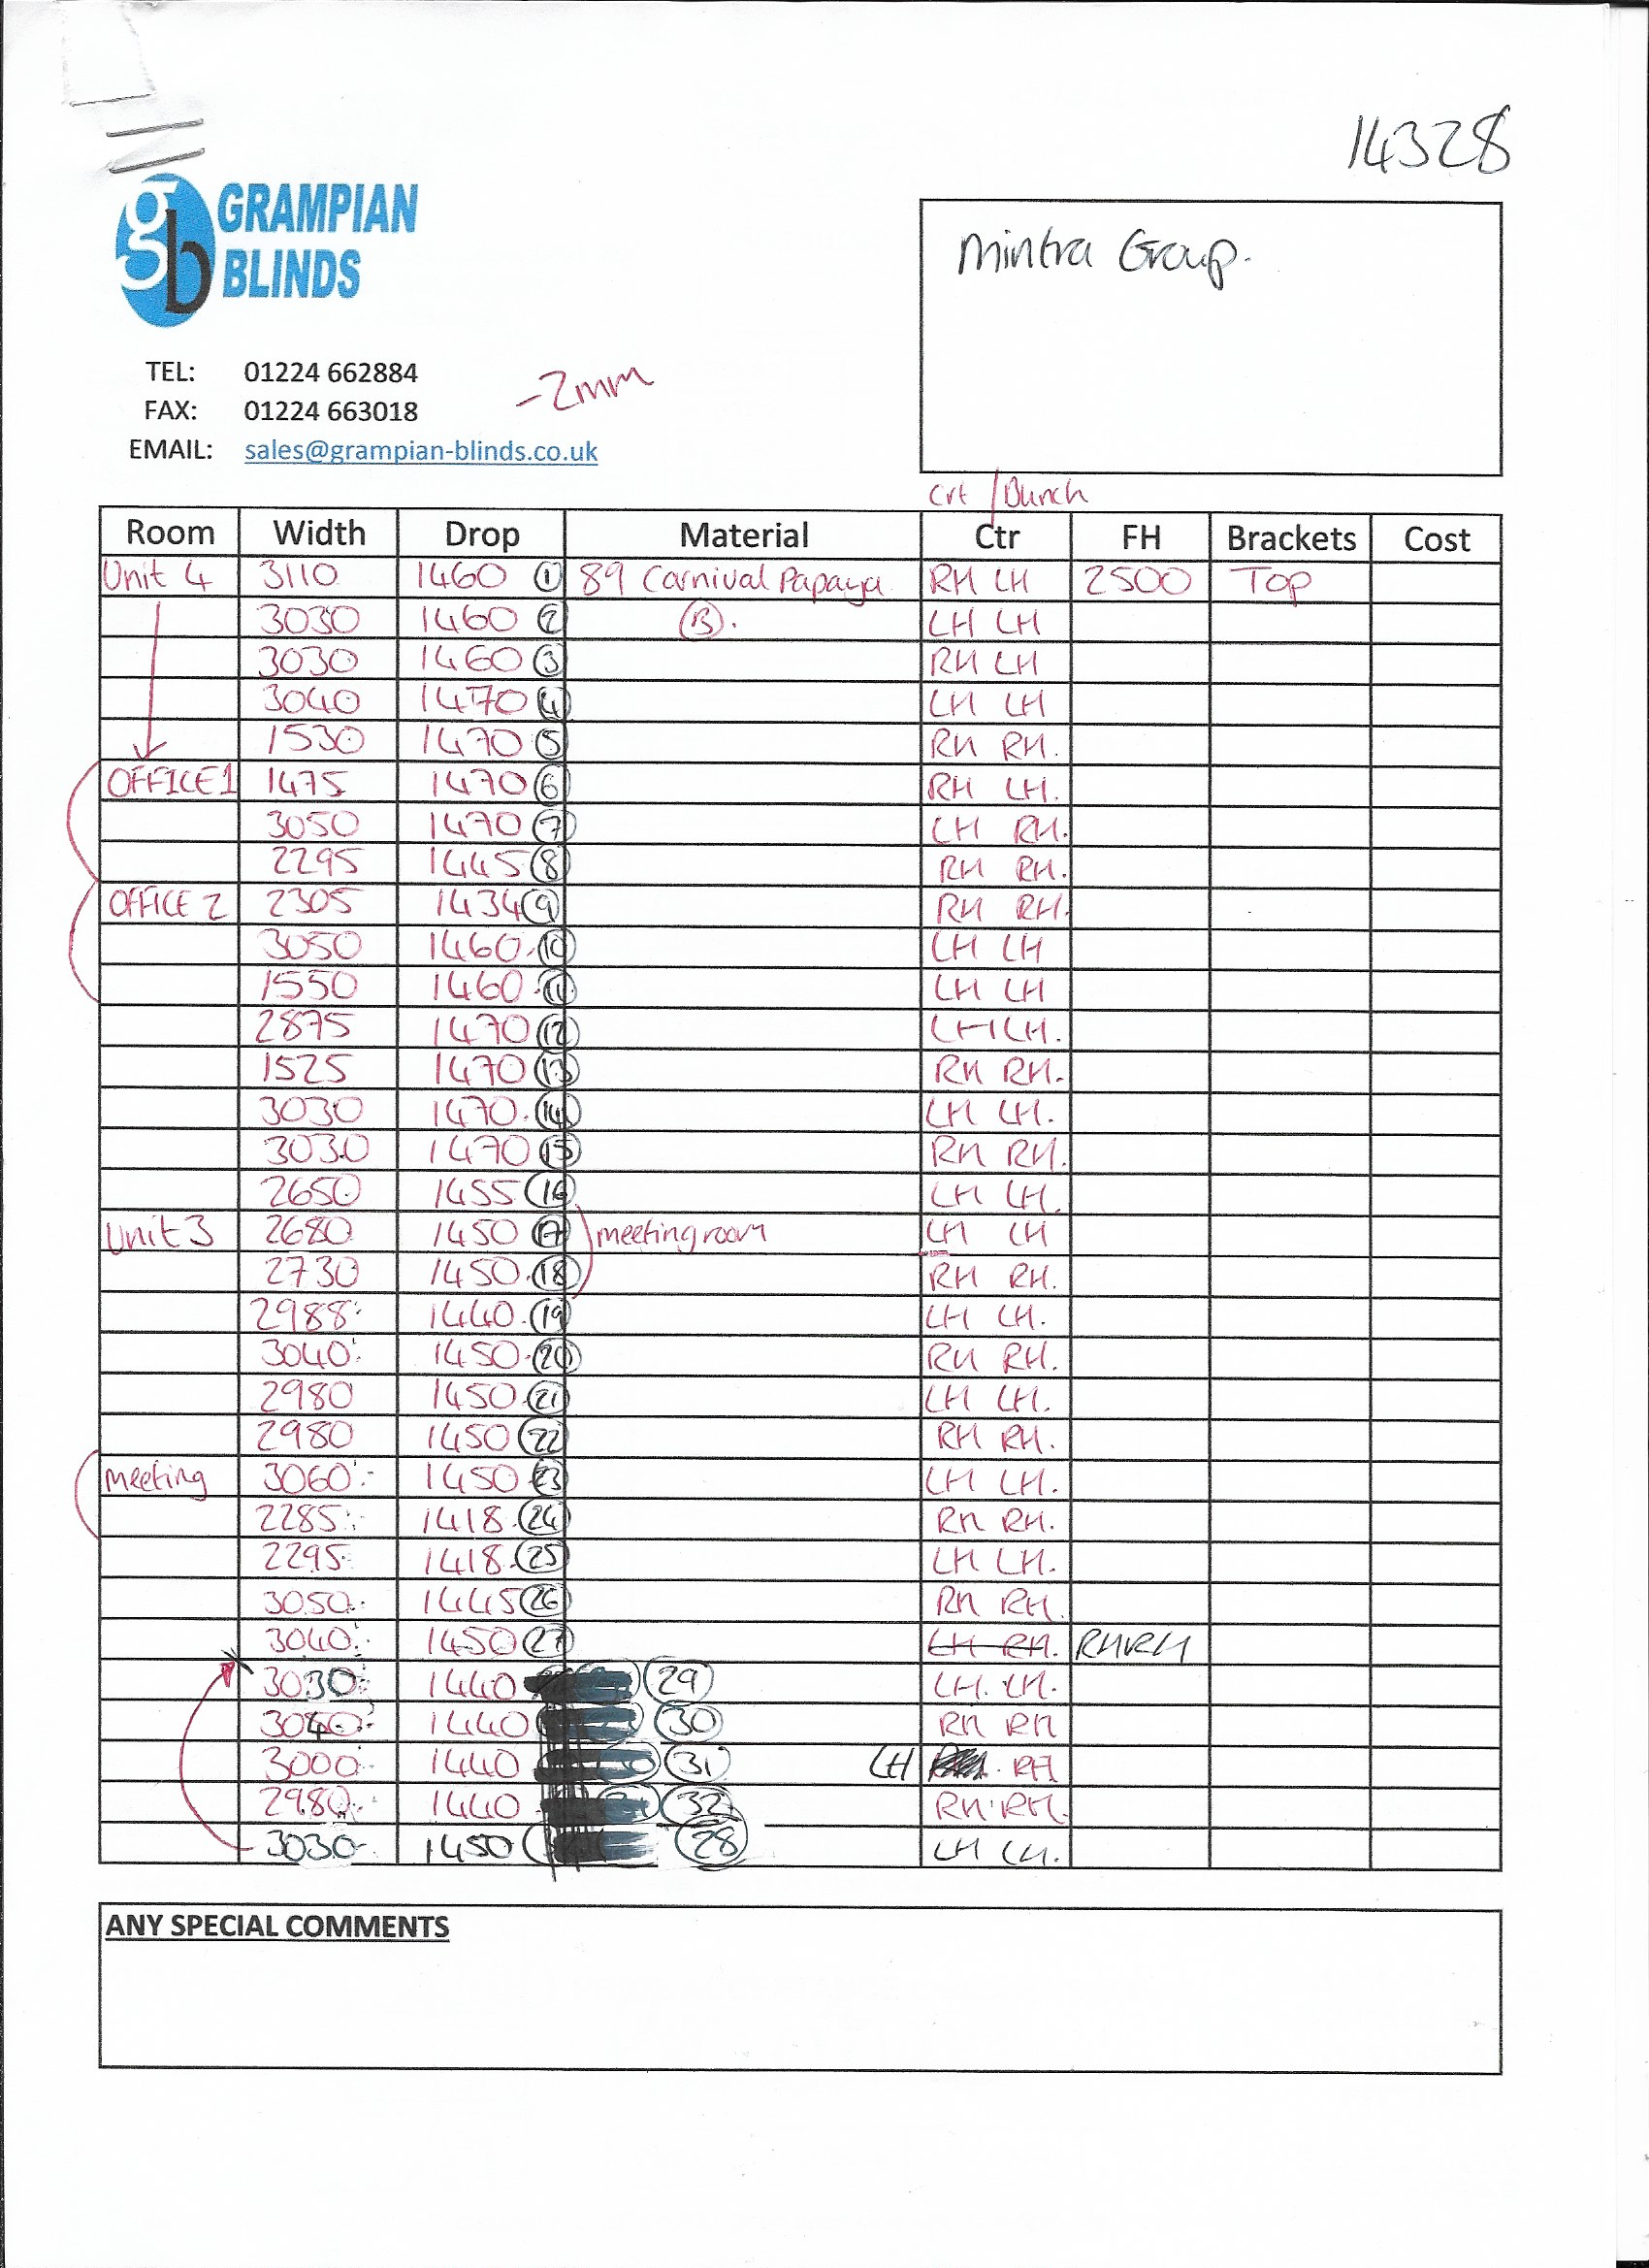 14328
GRAMPIAN
BLINDS
Mintra Group.
TEL: 01224 662884
FAX: 01224 663018
-2mm
EMAIL: sales@grampian-blinds.co.uk
Crt / Bunch
Room Width Drop Material Ctr FH Brackets Cost
Unit 4 3110 1460 1 89 Carnival Papaya RH LH 2500 Top
3030 1460 2 B. LH LH
3030 1460 3 RH LH
3040 1470 4 LH LH
1530 1470 5 RH RH.
OFFICE 1 1475 1470 6 RH LH.
3050 1470 7 LH RH.
2295 1445 8 RH RH.
OFFICE 2 2305 1434 9 RH RH.
3050 1460 10 LH LH
1550 1460 11 LH LH
2875 1470 12 LH LH.
1525 1470 13 RH RH.
3030 1470. 14 LH LH.
3030 1470 15 RH RH.
2650 1455 16 LH LH.
Unit 3 2680 1450 17 meeting room LH LH
2730 1450. 18 RH RH.
2988 1440. 19 LH LH.
3040 1450. 20 RH RH.
2980 1450 21 LH LH.
2980 1450 22 RH RH.
Meeting 3060 1450 23 LH LH.
2285 1418. 24 RH RH.
2295 1418. 25 LH LH.
3050 1445 26 RH RH.
3040 1450 27 LH RH. RH RH
3030 1440 29 LH. LH.
3040 1440 30 RH RH
3000 1440 31 LH RH
2980 1440 32 RH RH.
3030 1450 28 LH LH.
ANY SPECIAL COMMENTS